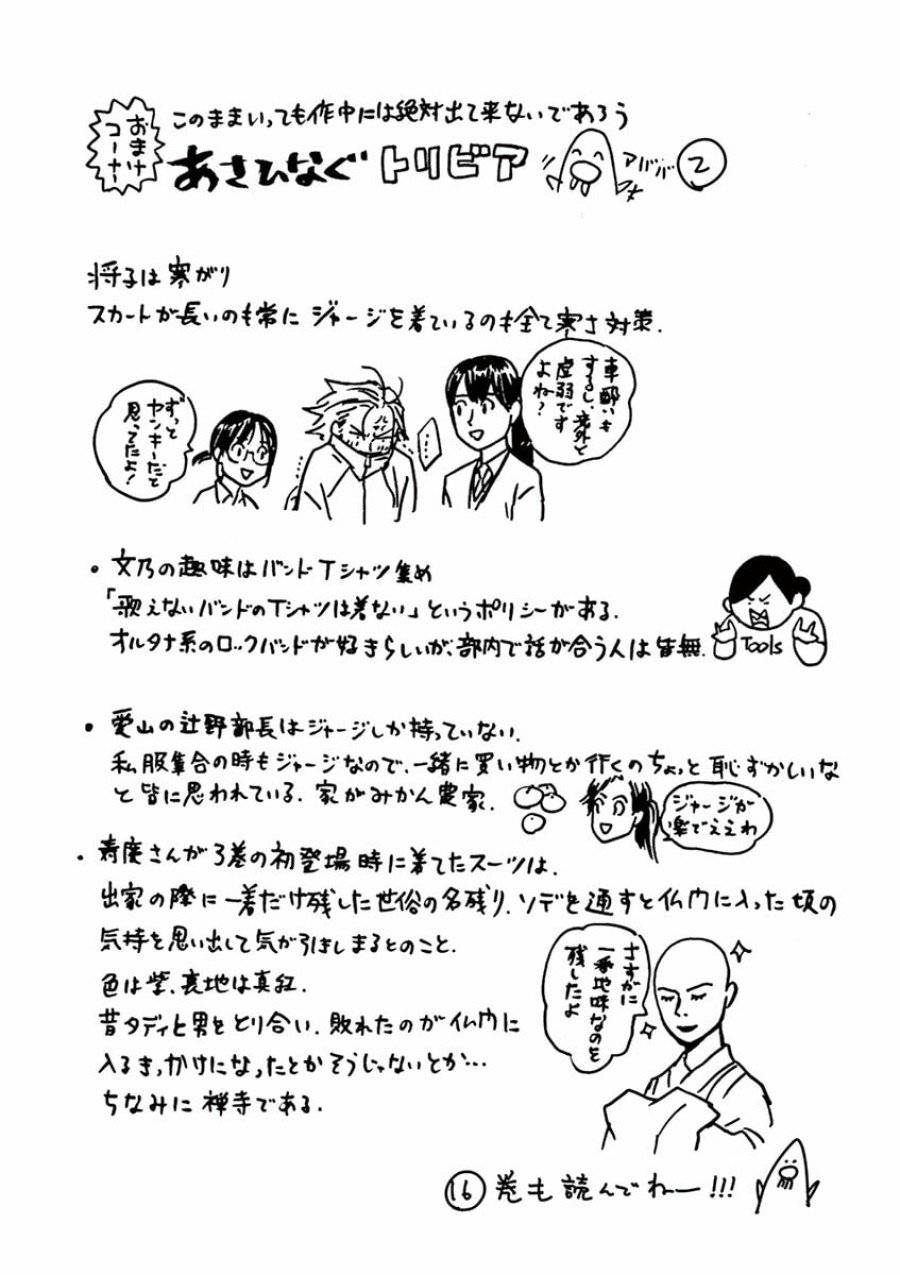 おまけ
コーナー
このままいっても作中には絶対出て来ないであろう
あさひなぐ トリビア
アババババ
②
将子は寒がり
スカートが長いのも常にジャージを着ているのも全て寒さ対策.
車酔いも
するし、意外と
虚弱です
よね?
・・・・
ずっと
ヤンキーだと
思ってたよ!
・文乃の趣味はバンドTシャツ集め
「歌えないバンドのTシャツは着ない」というポリシーがある.
オルタナ系のロックバンドが好きらしいが、部内で話が合う人は皆無.
Tools
・愛山の辻野部長はジャージしか持っていない.
私服集合の時もジャージなので、一緒に買い物とか行くのちょっと恥ずかしいな
と皆に思われている. 家がみかん農家.
ジャージが
楽でええわ
・寿慶さんが3巻の初登場時に着てたスーツは.
出家の際に一着だけ残した世俗の名残り. ソデを通すと仏門に入った頃の
気持を思い出して気が引きしまるとのこと.
色は紫、裏地は真紅.
昔タディと男をとり合い、敗れたのが仏門に
入るきっかけになったとかそうじゃないとか…
ちなみに禅寺である.
さすがに
一番地味なのを
残したよ
⑯巻も読んでねー!!!